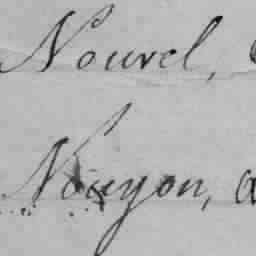 Nouvel,
Nouyon,